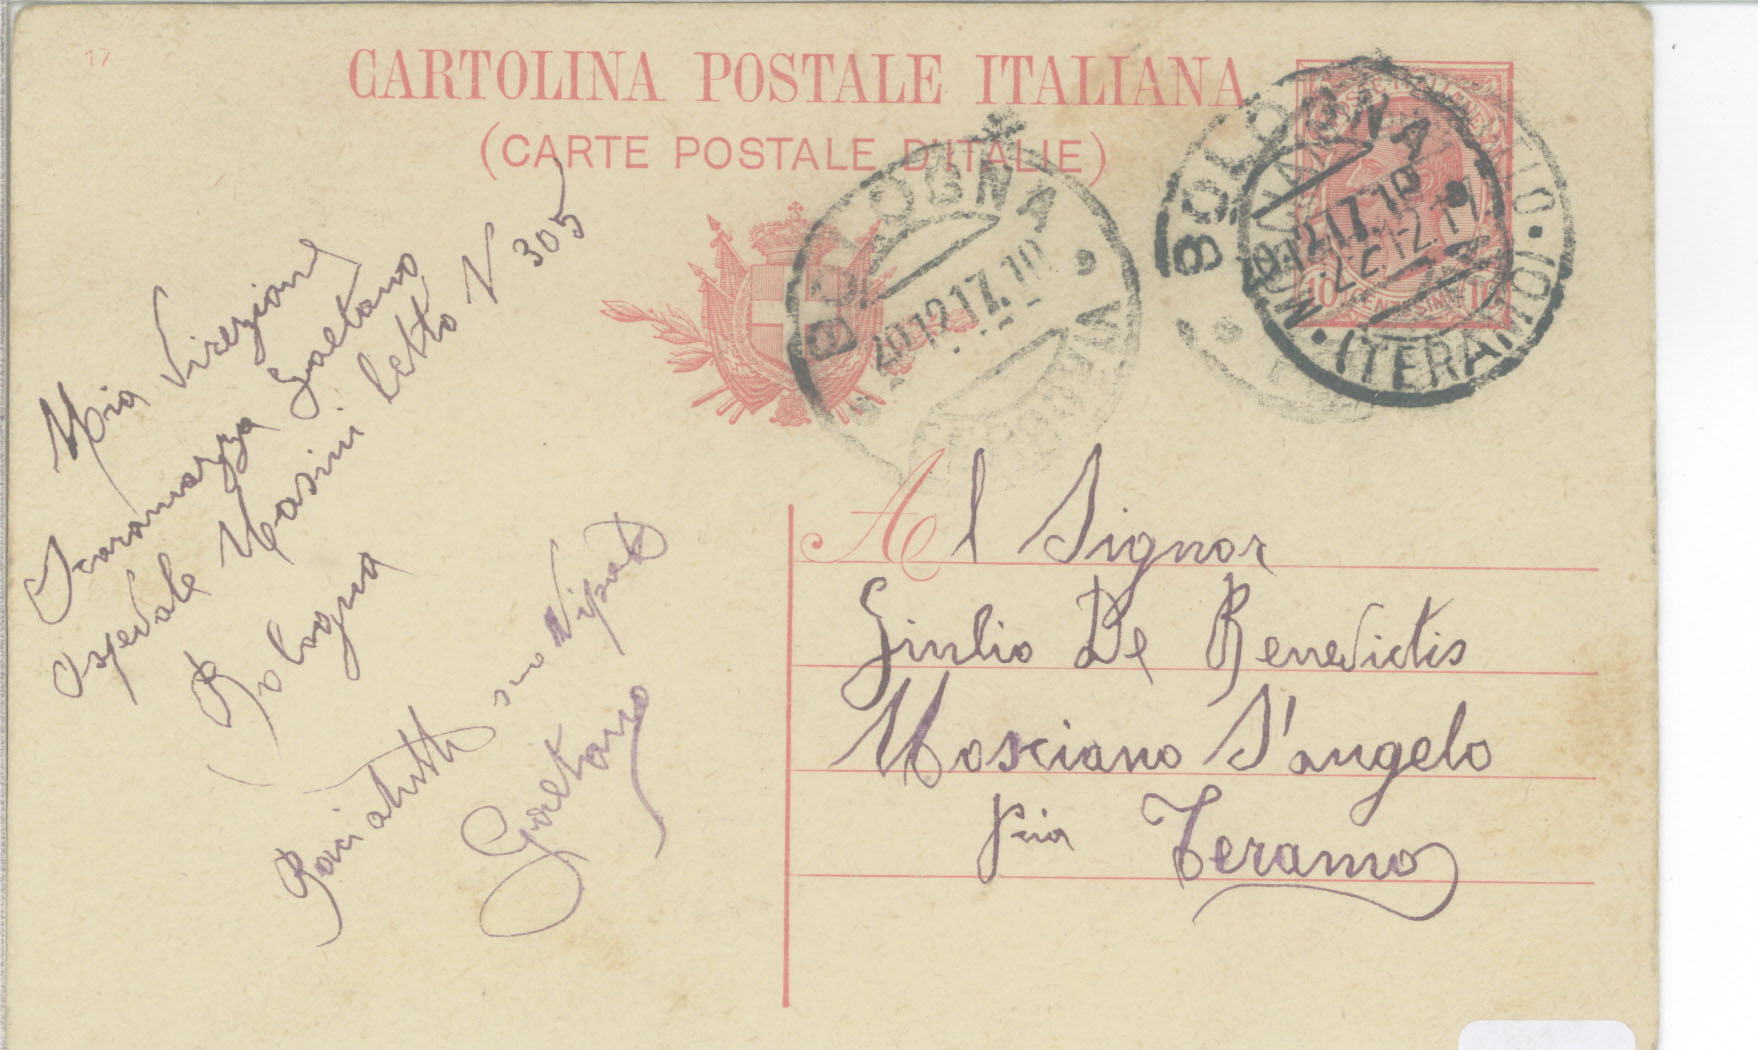 17
CARTOLINA POSTALE ITALIANA
(CARTE POSTALE D'ITALIE)
BOLOGNA
20.12.17.10
FERROVIA
BOLOGNA
12.17.10
(TERAMO)
10 CENTESIMI 10
Mia Direzione
Scaramazza Gaetano
Ospedale Masini letto N 305
Bologna
Baci a tutti suo Nipote
Gaetano
Al Signor
Giulio De Benedictis
Mosciano S'angelo
pria Teramo